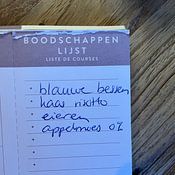 BOODSCHAPPEN
LIJST
LISTE DE COURSES
blauwe bessen
kaas
eieren
appelmoes 0%